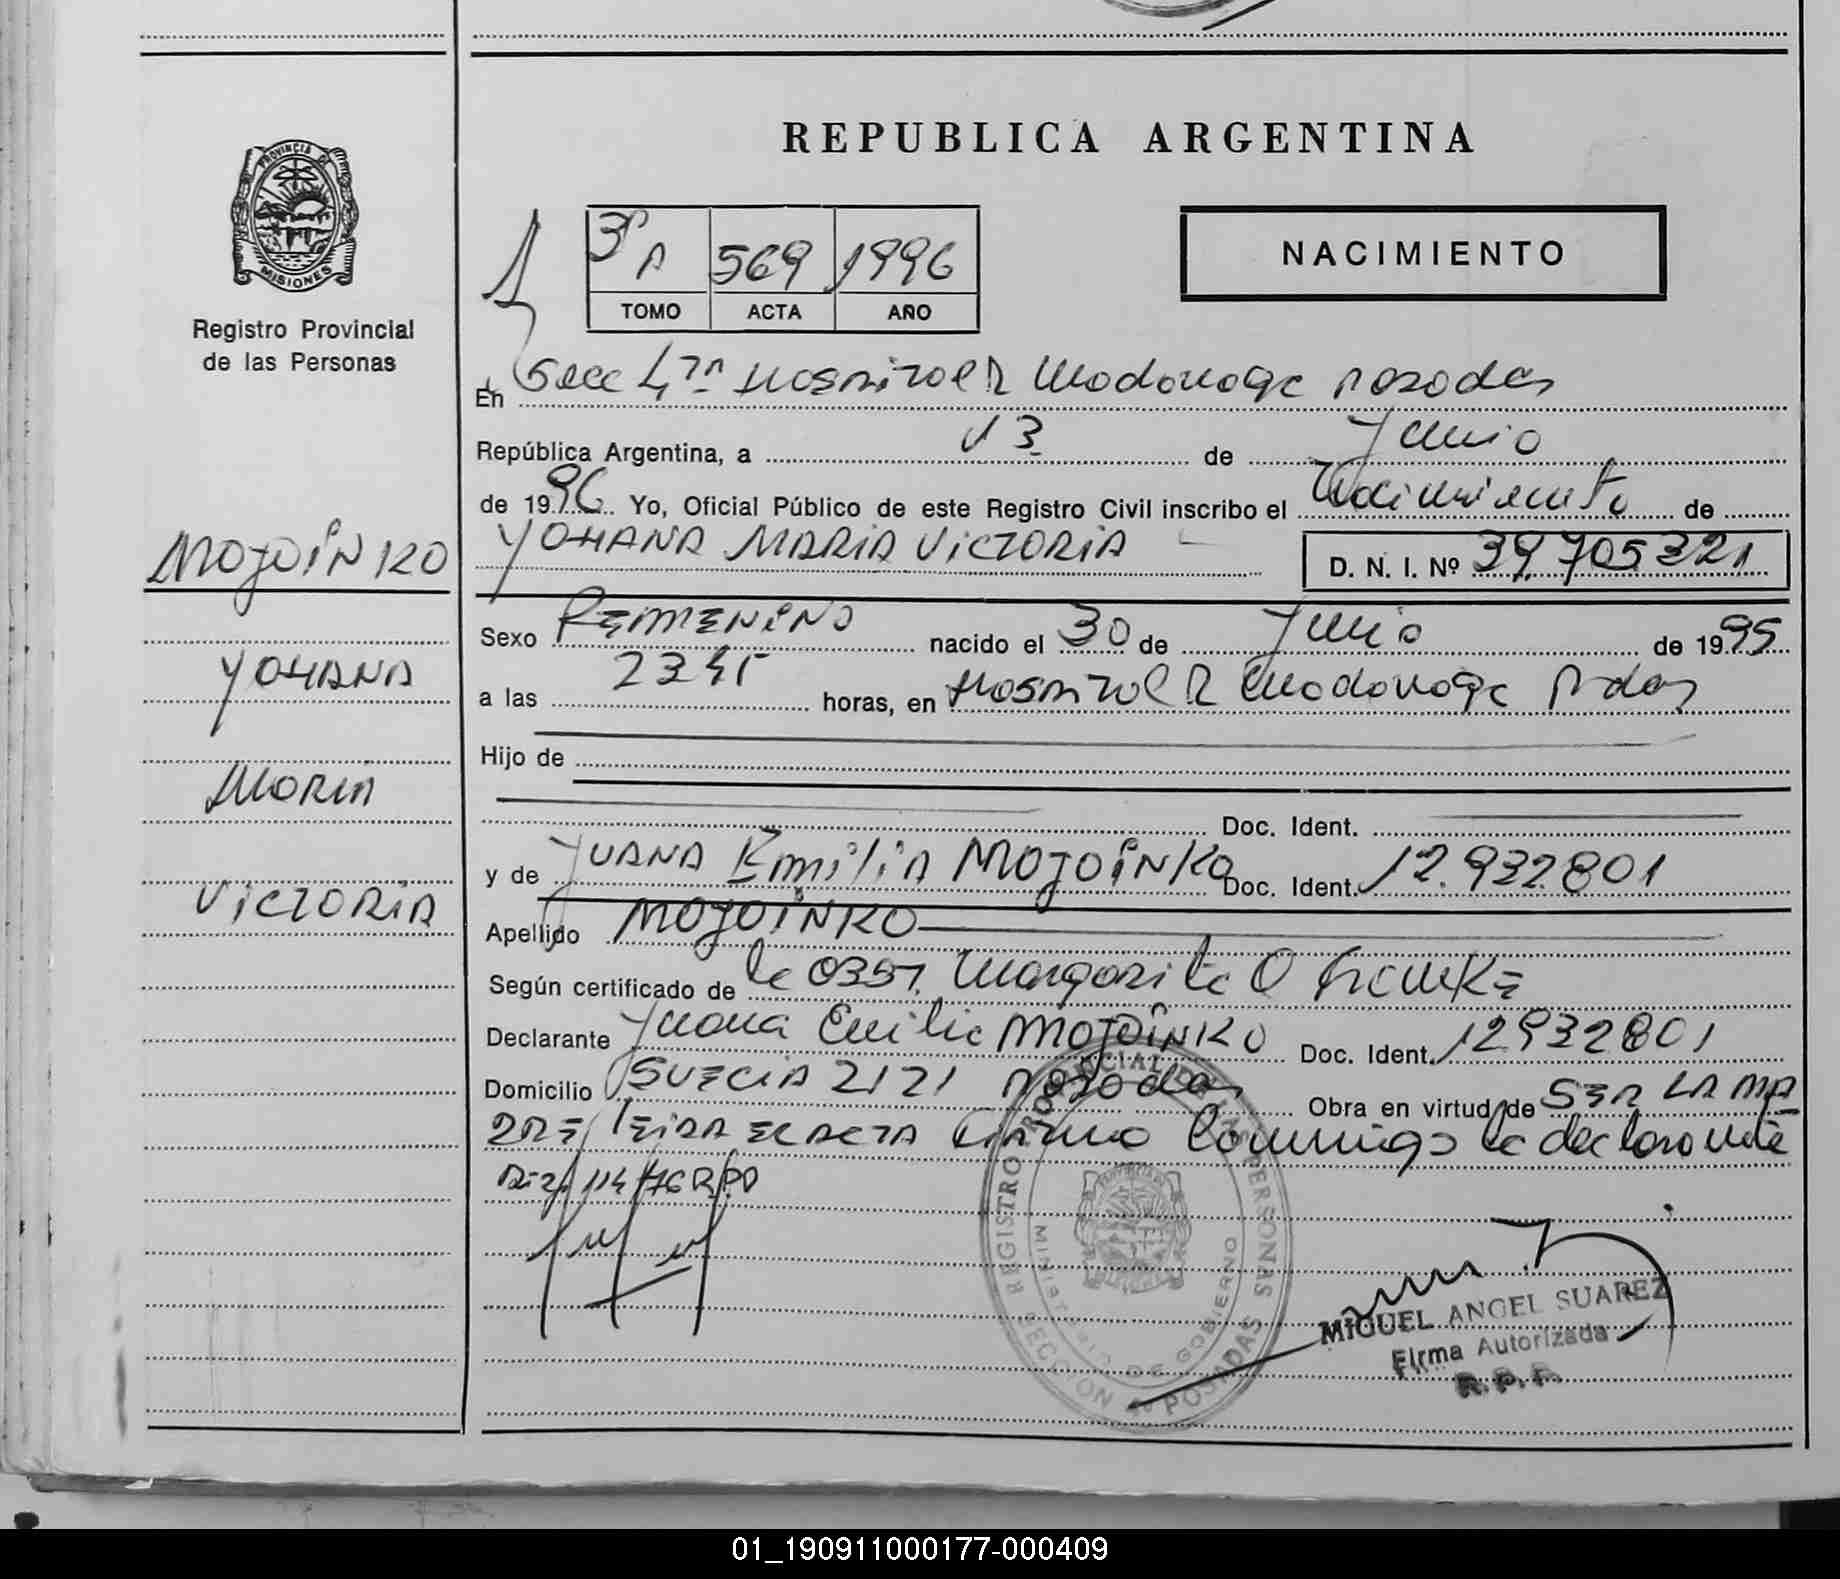 REPUBLICA ARGENTINA
PROVINCIA DE
MISIONES
Registro Provincial
de las Personas
3º A 569 1996
TOMO ACTA AÑO
NACIMIENTO
En Secc 4ta Hospital R Madariaga Posadas
República Argentina, a 13 de Junio
de 1996. Yo, Oficial Público de este Registro Civil inscribo el Nacimiento de
YOHANA MARIA VICTORIA D. N. I. Nº 39.705321
MOJOINKO
YOHANA
MARIA
VICTORIA
Sexo FEMENINO nacido el 30 de Junio de 1995
a las 2345 horas, en Hospital R Madariaga Pdas
Hijo de
Doc. Ident.
y de JUANA Emilia MOJOINKO Doc. Ident. 12.932.801
Apellido MOJOINKO
Según certificado de la 0357. Margarita O
Declarante Juana Emilia MOJOINKO Doc. Ident. 12932801
Domicilio SUECIA 2121 Posadas Obra en virtud de SER LA MA
DRE leida EL ACTA Firma Conmigo la declarante
114/76 RPP
REGISTRO PROVINCIAL DE LAS PERSONAS
MINISTERIO DE GOBIERNO
SECCION 4a POSADAS
MIGUEL ANGEL SUAREZ
Firma Autorizada
R. P. P.
01_190911000177-000409